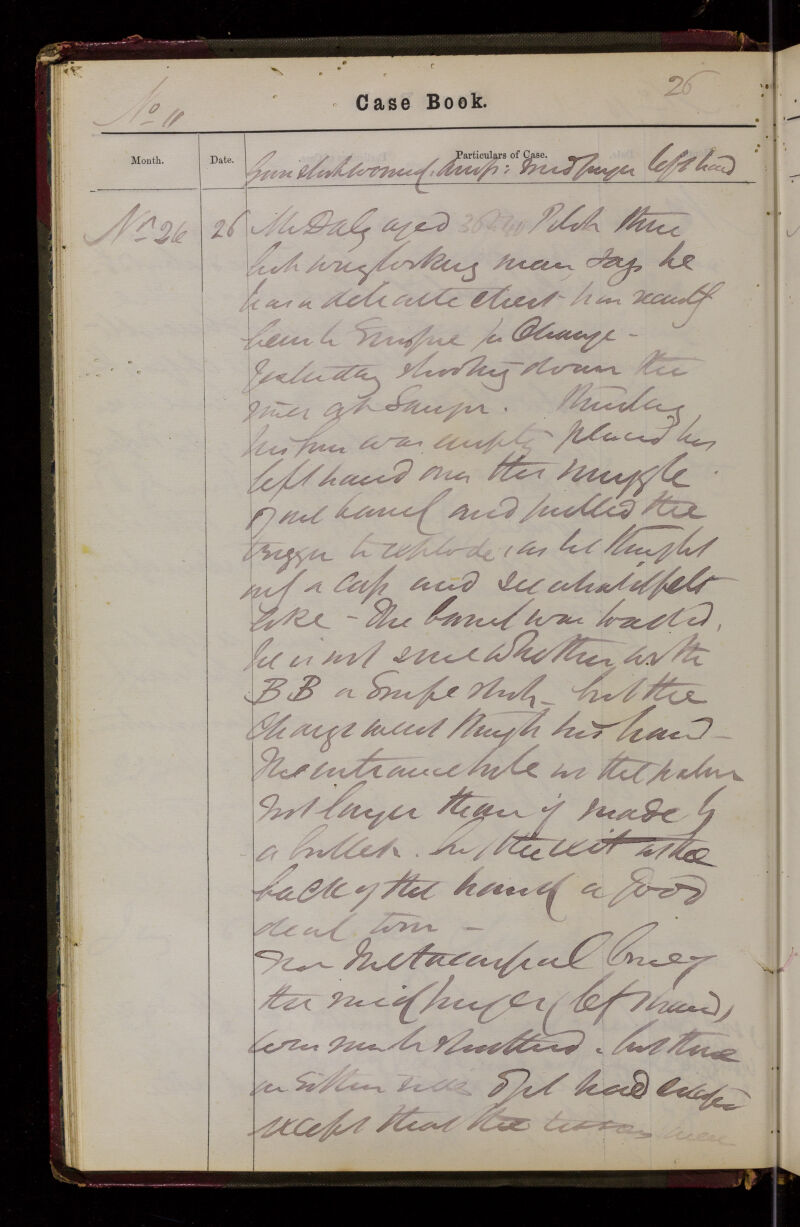 26
No 11
Case Book.
Month.
Date.
Particulars of Case.
Gunshot wound. Amp: mid finger left hand
Nov 26
26
Mr Daly aged Pilot thin
looking man, says he
has a delicate chest - has recently
been to Europe for Change -
Yesterday shooting down the
river at . Thinking
his gun was empty placed his
left hand over the muzzle
of one barrel and pulled the
trigger to explode, as he thought
only a cap and see what it felt
like - The barrel was loaded,
he is not sure whether with
BB or Snipe shot - but the
charge went through his hand -
The entrance hole in the palm
not larger than if made by
a bullet. but the exit at the
back of the hand a good
deal torn -
The Metacarpal bone of
the mid finger (left hand)
were much shattered - but those
on either side of it had escaped
except that the were